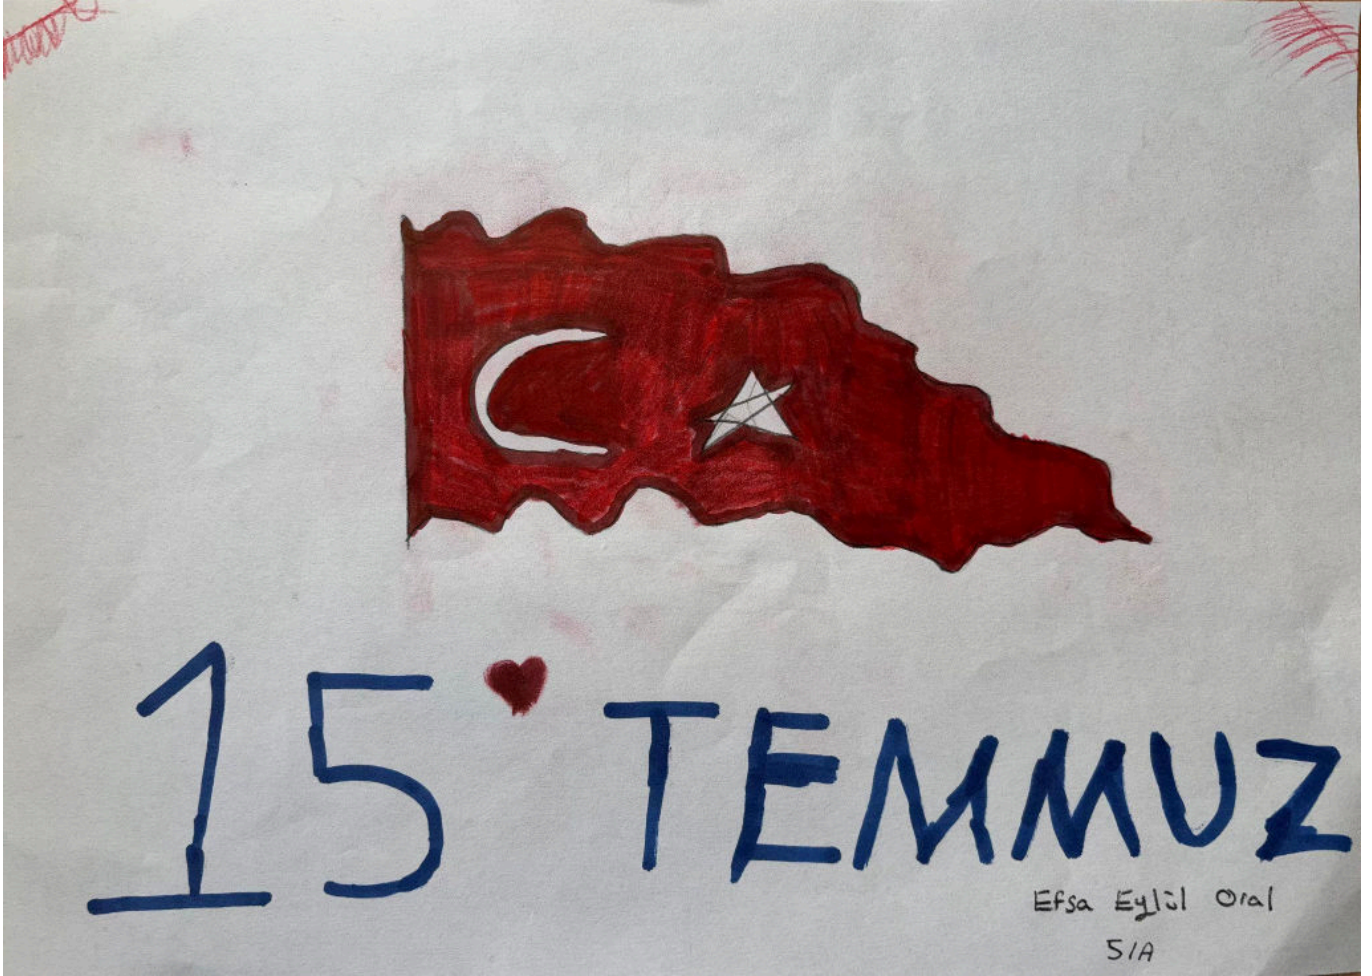 15 TEMMUZ
Efsa Eylül Oral
5/A